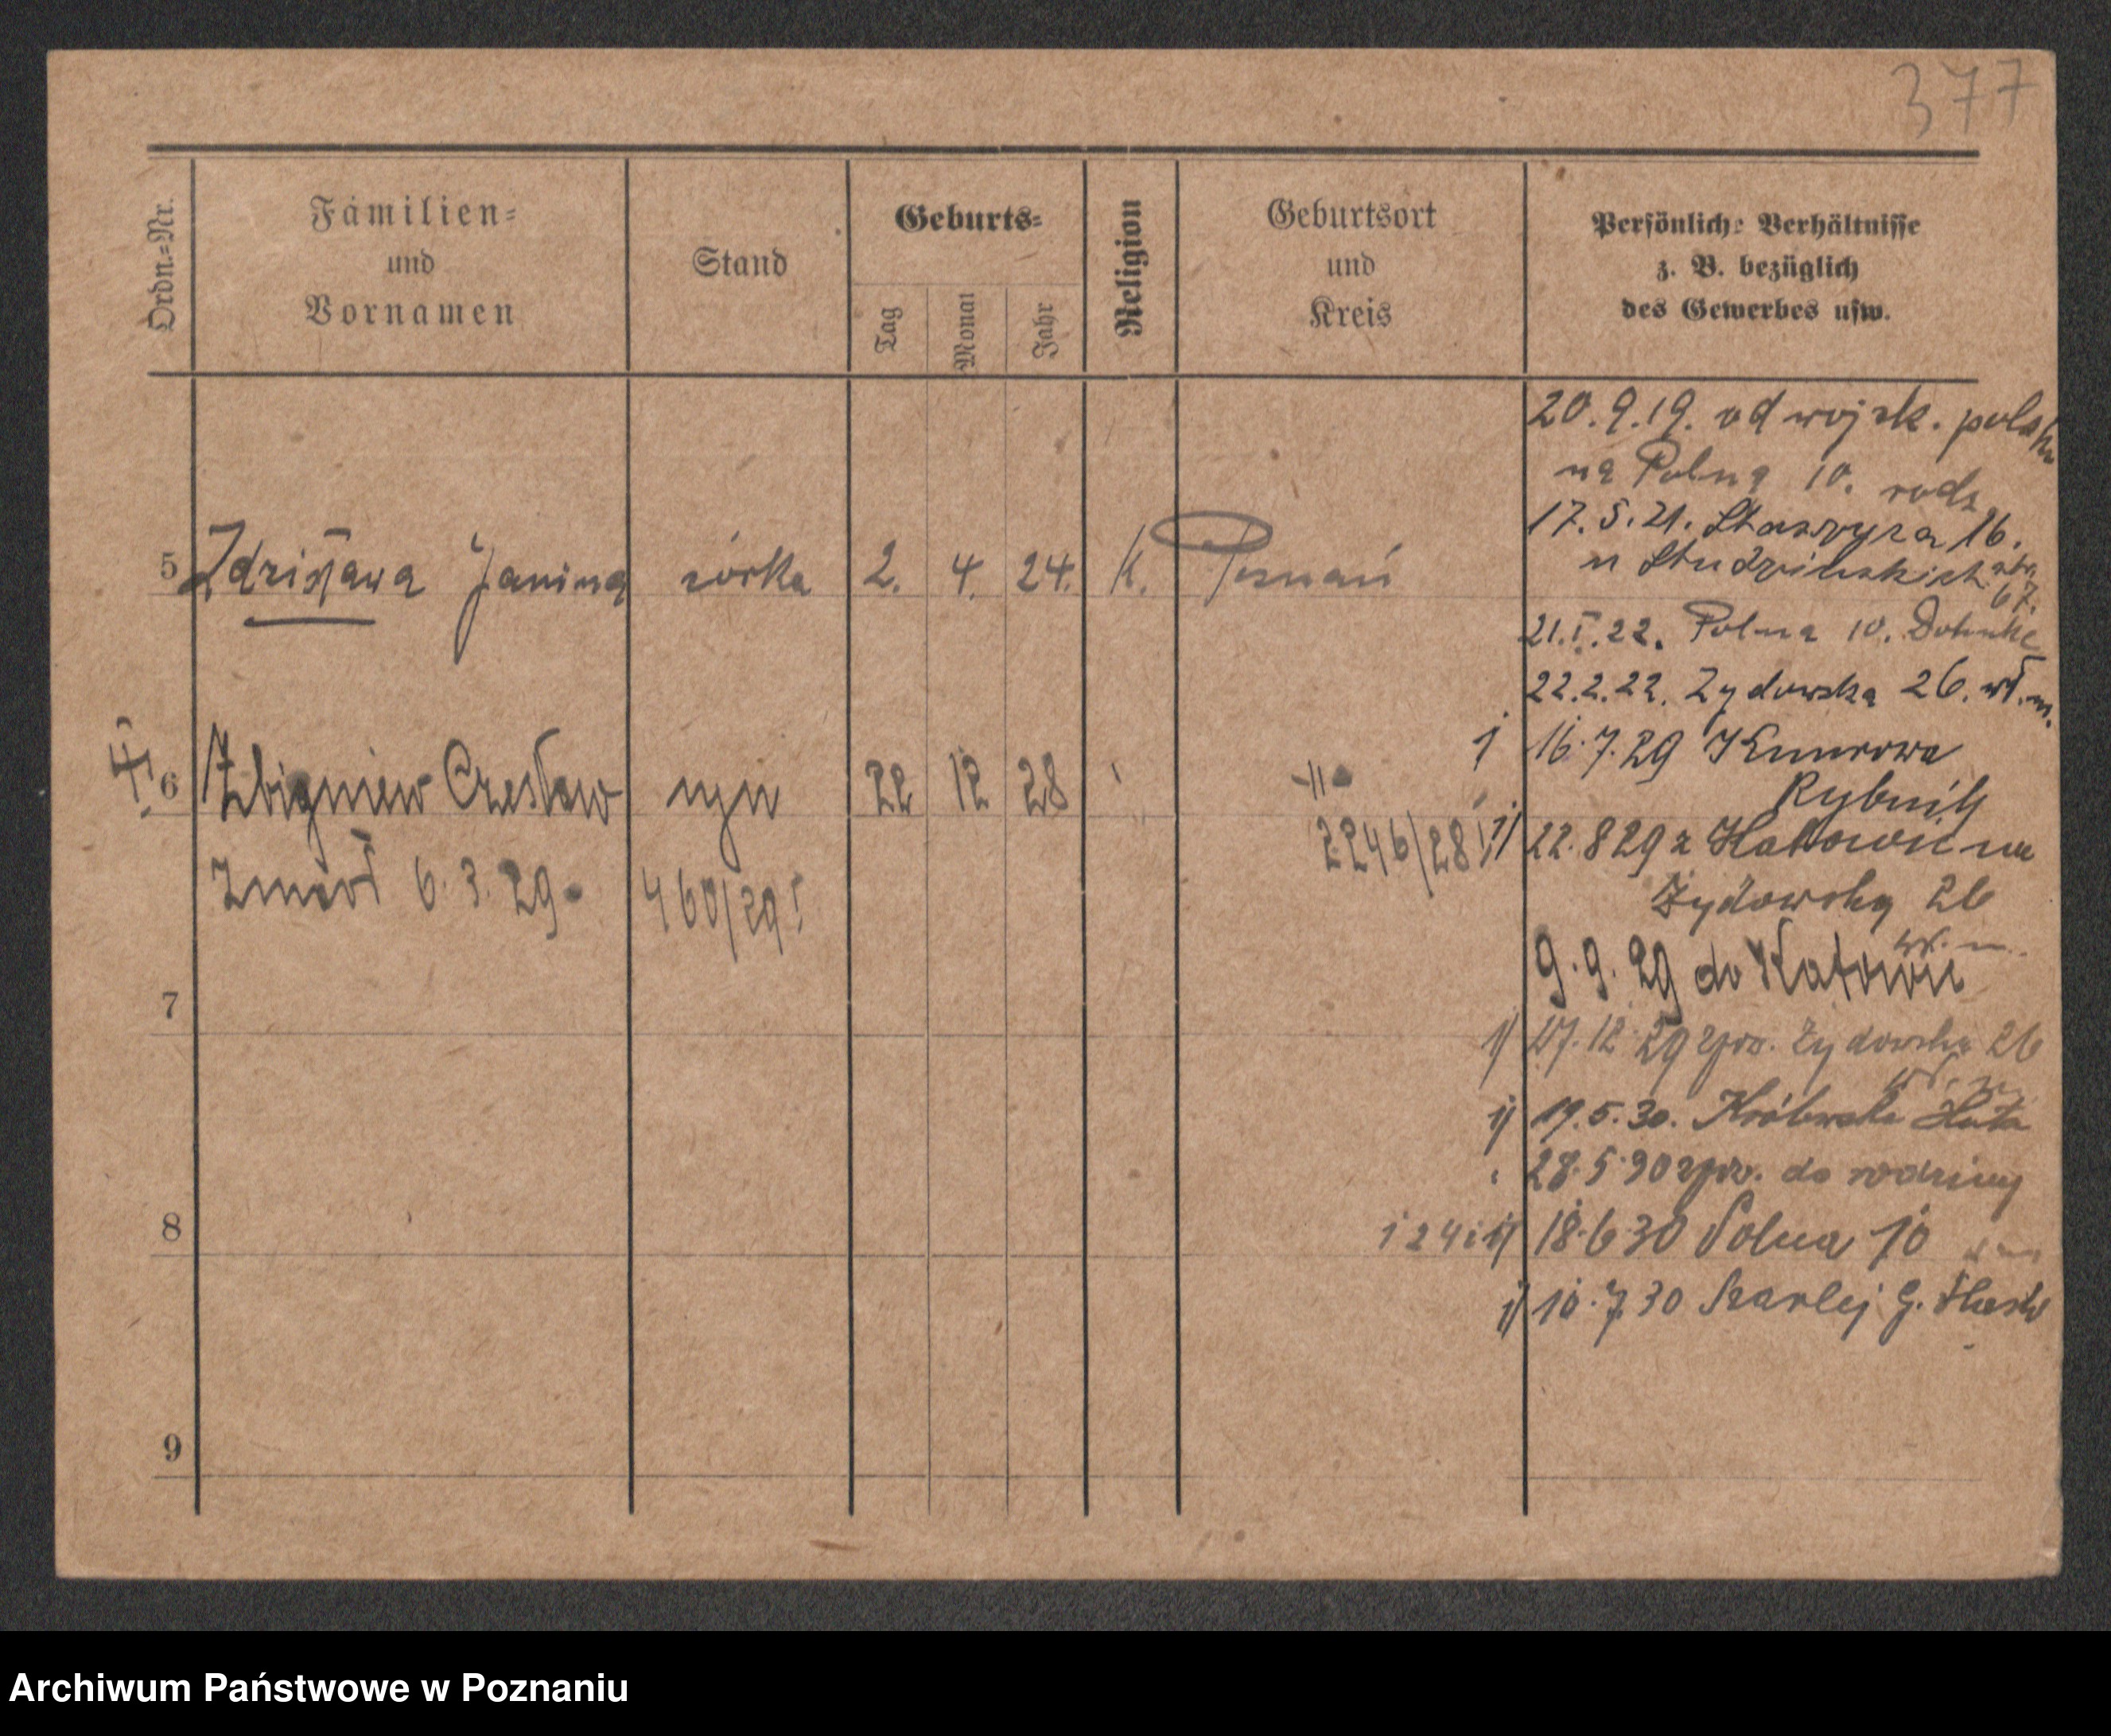 377
Ordn.=Nr.
Familien=
und
Vornamen
Stand
Geburts=
Tag
Monat
Jahr
Religion
Geburtsort
und
Kreis
Persönliche Verhältnisse
z. B. bezüglich
des Gewerbes usw.
20.9.19. od wojsk. polsk
na Polną 10. rodz
17.5.21. Staszyca 16.
u Studzińskich
5 Zdzisława Janina córka 2. 4. 24. K. Poznań
21.I.22. Polna 10.
22.2.22. Żydowska 26. wł.m.
1 16.7.29 Knurowa
Rybnik
6 Zbigniew Czesław syn 22 12 28 -||-
2246/28!
1) 22.8 29 z Katowic na
Żydowską 26
wł. m.
Zmarł 6.3.29- 460/29!
9.9.29 do Katowic
7
1) 27.12 29 spr. Żydowska 26
wł. m.
1) 19.5.30. Królewska Huta
28.5.30 spr. do rodziny
8
1 2 4 i 1) 18.6 30 Polna 10
1) 10.7.30 Szarlej G. Śląsk
9
Archiwum Państwowe w Poznaniu